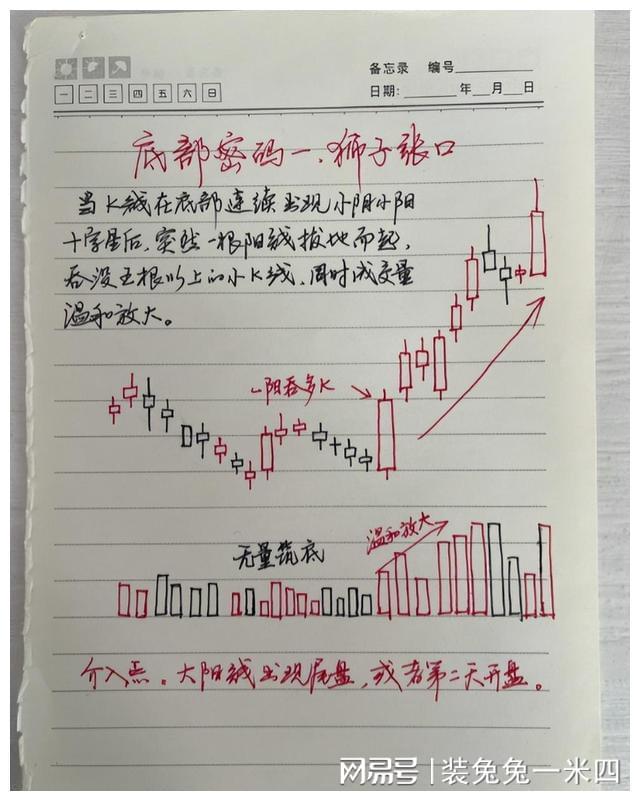 备忘录 编号
一 二 三 四 五 六 日
日期: 年 月 日
底部密码一、狮子张口
当K线在底部连续出现小阴小阳
十字星后,突然一根阳线拔地而起,
吞没五根以上的小K线,同时成交量
温和放大。
一阳吞多K
无量筑底
温和放大
介入点。大阳线出现尾盘,或者第二天开盘。
网易号 | 装兔兔一米四